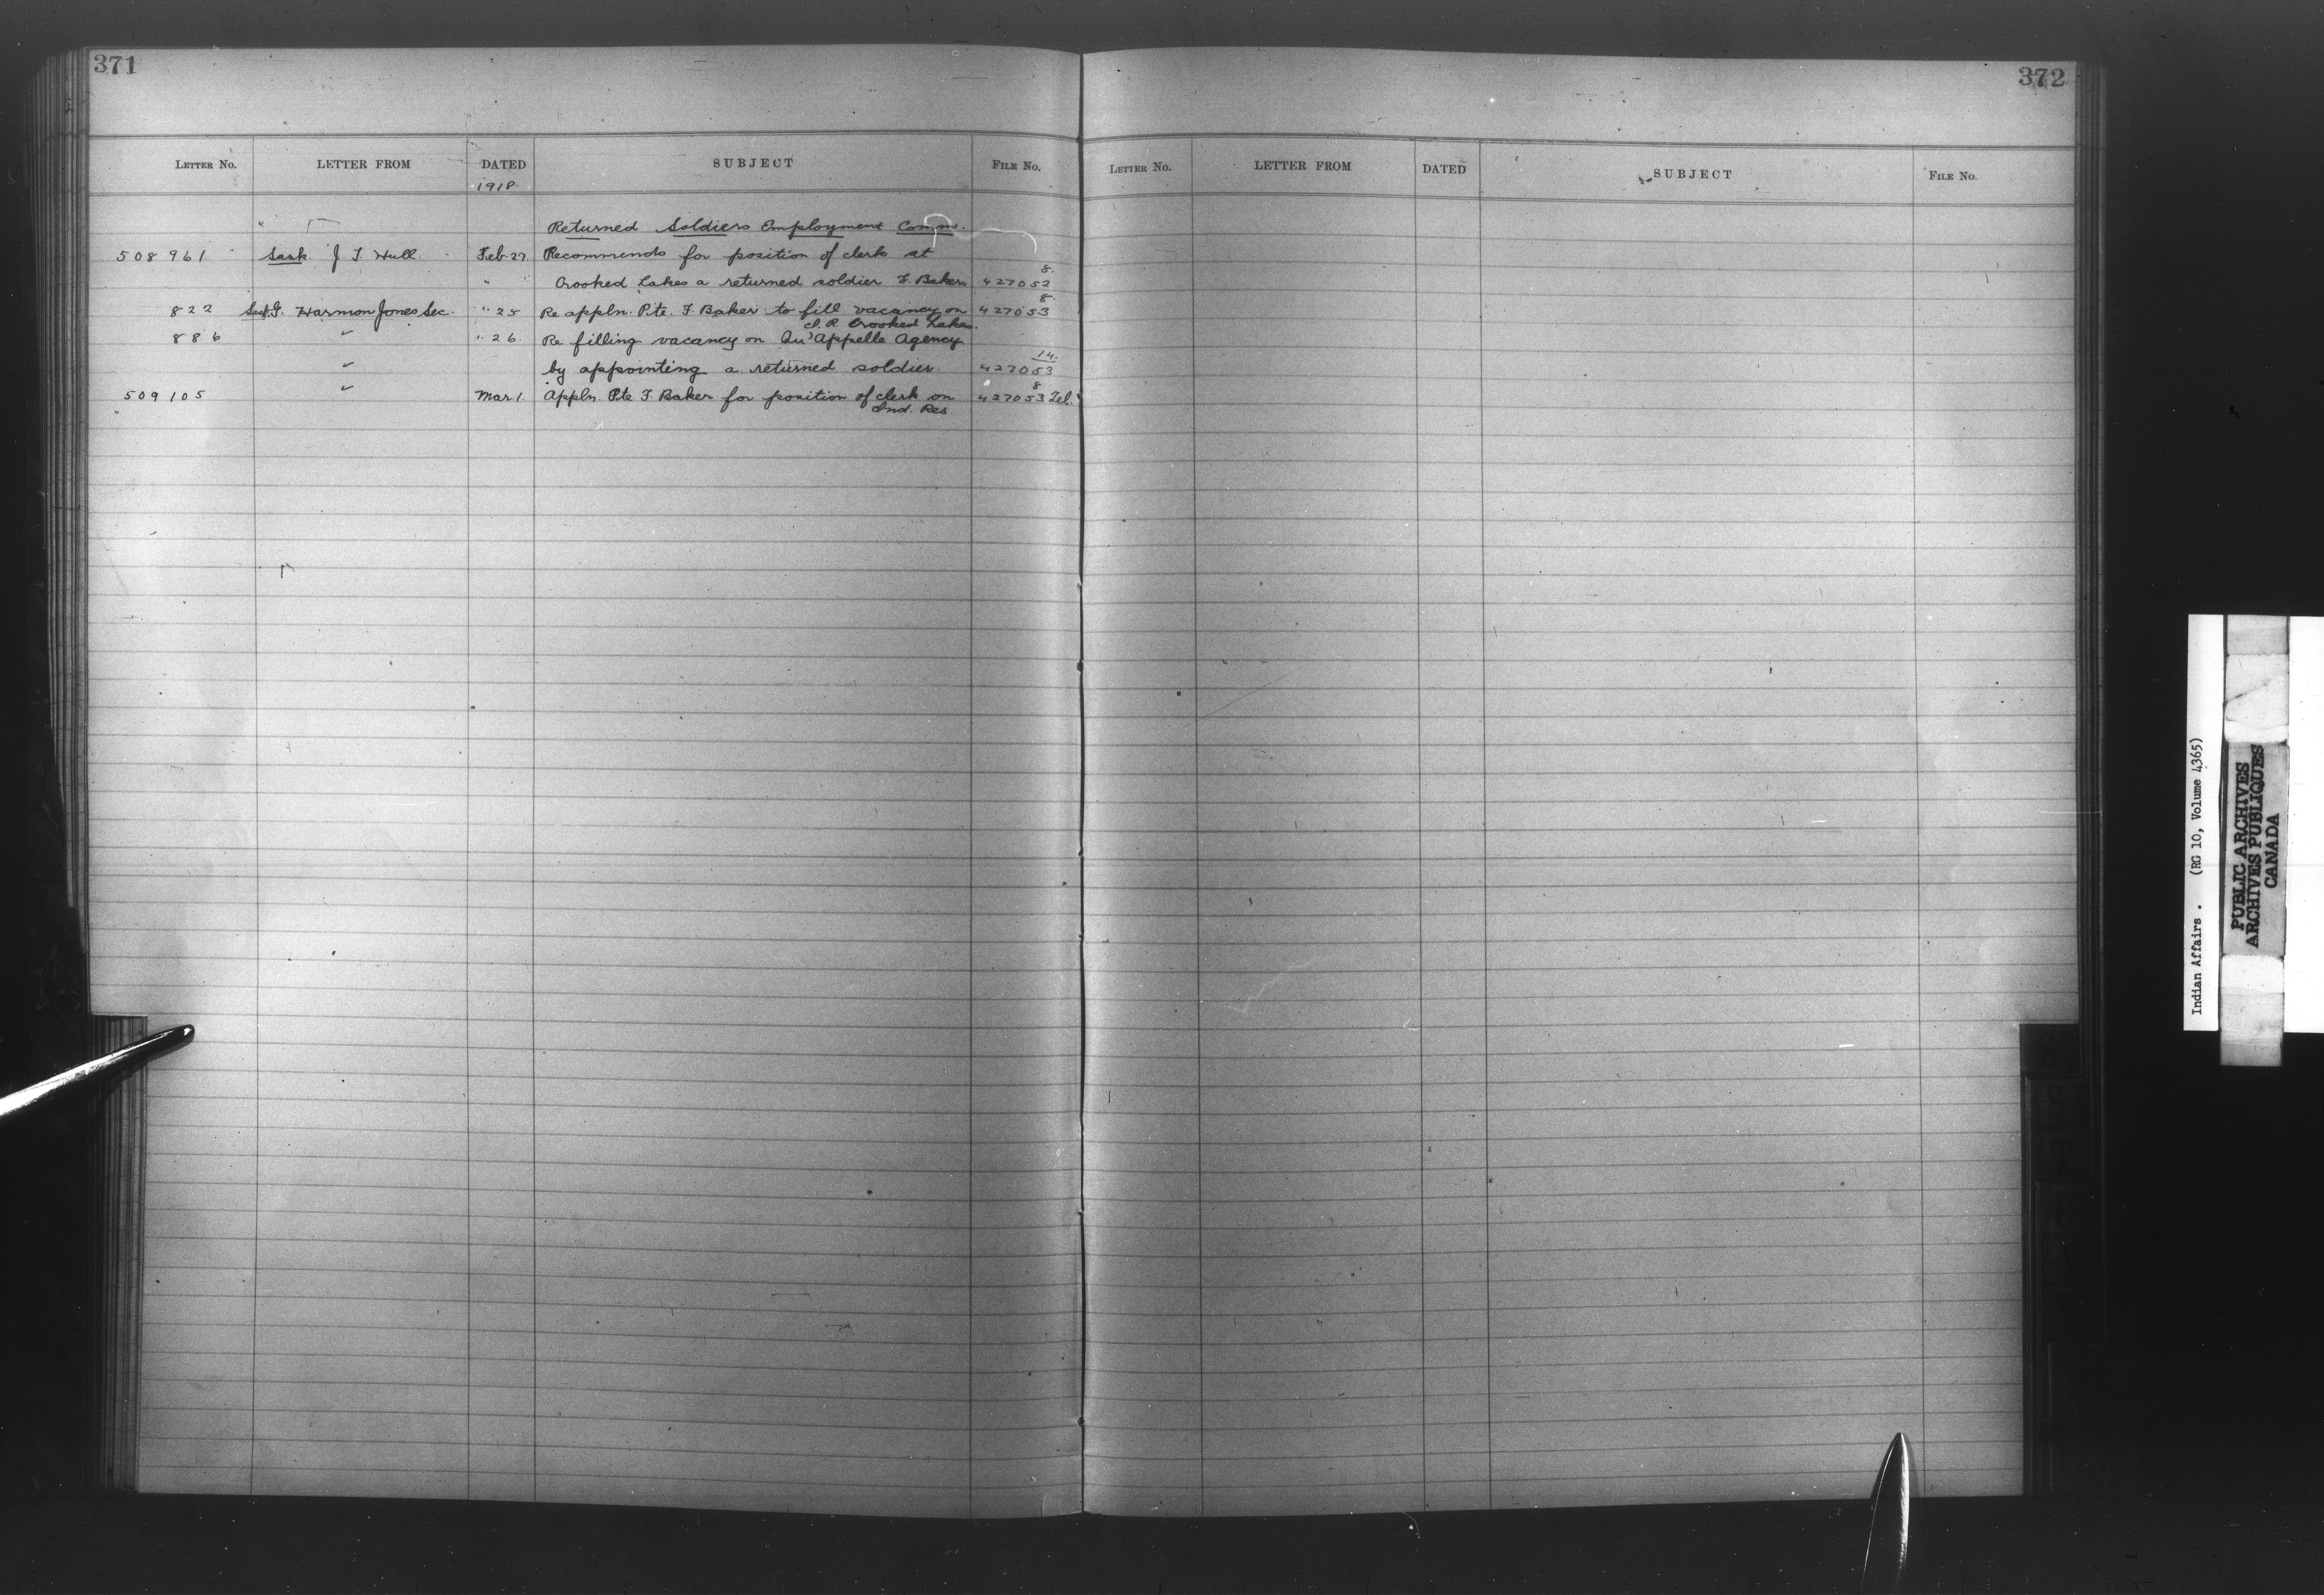 371
LETTER NO. LETTER FROM DATED SUBJECT FILE NO.
1918.
Returned Soldiers Employment Comm.
508961 Sask. J T Hull Feb. 27. Recommends for position of clerk at
8.
Crooked Lakes a returned soldier F. Baker 427052
8.
822 Sask. Harmon Jones Sec. " 25 Re appln. Pte. F. Baker to fill vacancy on 427053
I. R. Crooked Lakes.
886 " " 26. Re filling vacancy on Qu'Appelle Agency
14.
" by appointing a returned soldier. 427053
8
509105 " Mar 1. Appln. Pte F. Baker for position of clerk on 427053 Tel.
Ind. Res
372
LETTER NO. LETTER FROM DATED SUBJECT FILE NO.
Indian Affairs . (RG 10, Volume 4365)
PUBLIC ARCHIVES
ARCHIVES PUBLIQUES
CANADA